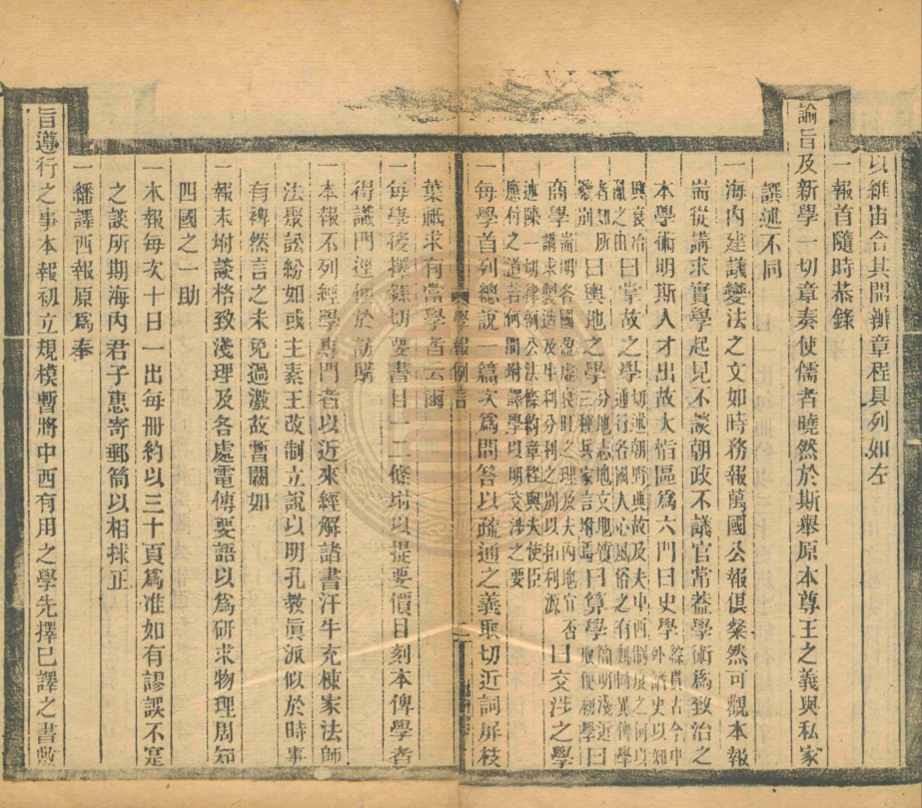 以維宙合其開辦章程具列如左
一報首隨時恭錄
諭旨及新學一切章奏使儒者曉然於斯舉原本尊王之義與私家
譔述不同
一海內建議變法之文如時務報萬國公報俱粲然可觀本報
耑從講求實學起見不談朝政不議官常蓋學術爲致治之
本學術明斯人才出故大恉區爲六門曰史學綜貫古今中外諸史以知
興衰治亂之由曰掌故之學切述朝章典故及夫中西制度之何以通行各國人心風俗之有無同異俾學
者知所鑒別曰輿地之學分地志地文地質三種兵家言附焉曰算學簡明淺近取便初學曰
商學耑明各國盈虛衰旺之理及夫內地宜否講求製造及生利分利之別以拓利源曰交涉之學
述陳一切律例公法條約章程與夫使臣應付之道若何間附譯學以明交涉之要
一每學首列總說一篇次爲問答以疏通之義取切近詞屏枝
學報例言
葉祇求有當學者云爾
一每學後撰錄切要書目一二條坿以提要價目刻本俾學者
得識門逕便於訪購
一本報不列經學專門者以近來經解諸書汗牛充棟家法師
法聚訟紛如或主素王改制立說以明孔教眞派似於時事
有裨然言之未免過激故暫闕如
一報末坿談格致淺理及各處電傳要語以爲研求物理周知
四國之一助
一本報每次十日一出每冊約以三十頁爲准如有謬誤不寔
之談所期海內君子惠寄郵筒以相捄正
一繙譯西報原爲奉
旨遵行之事本報初立規模暫將中西有用之學先擇已譯之書敷